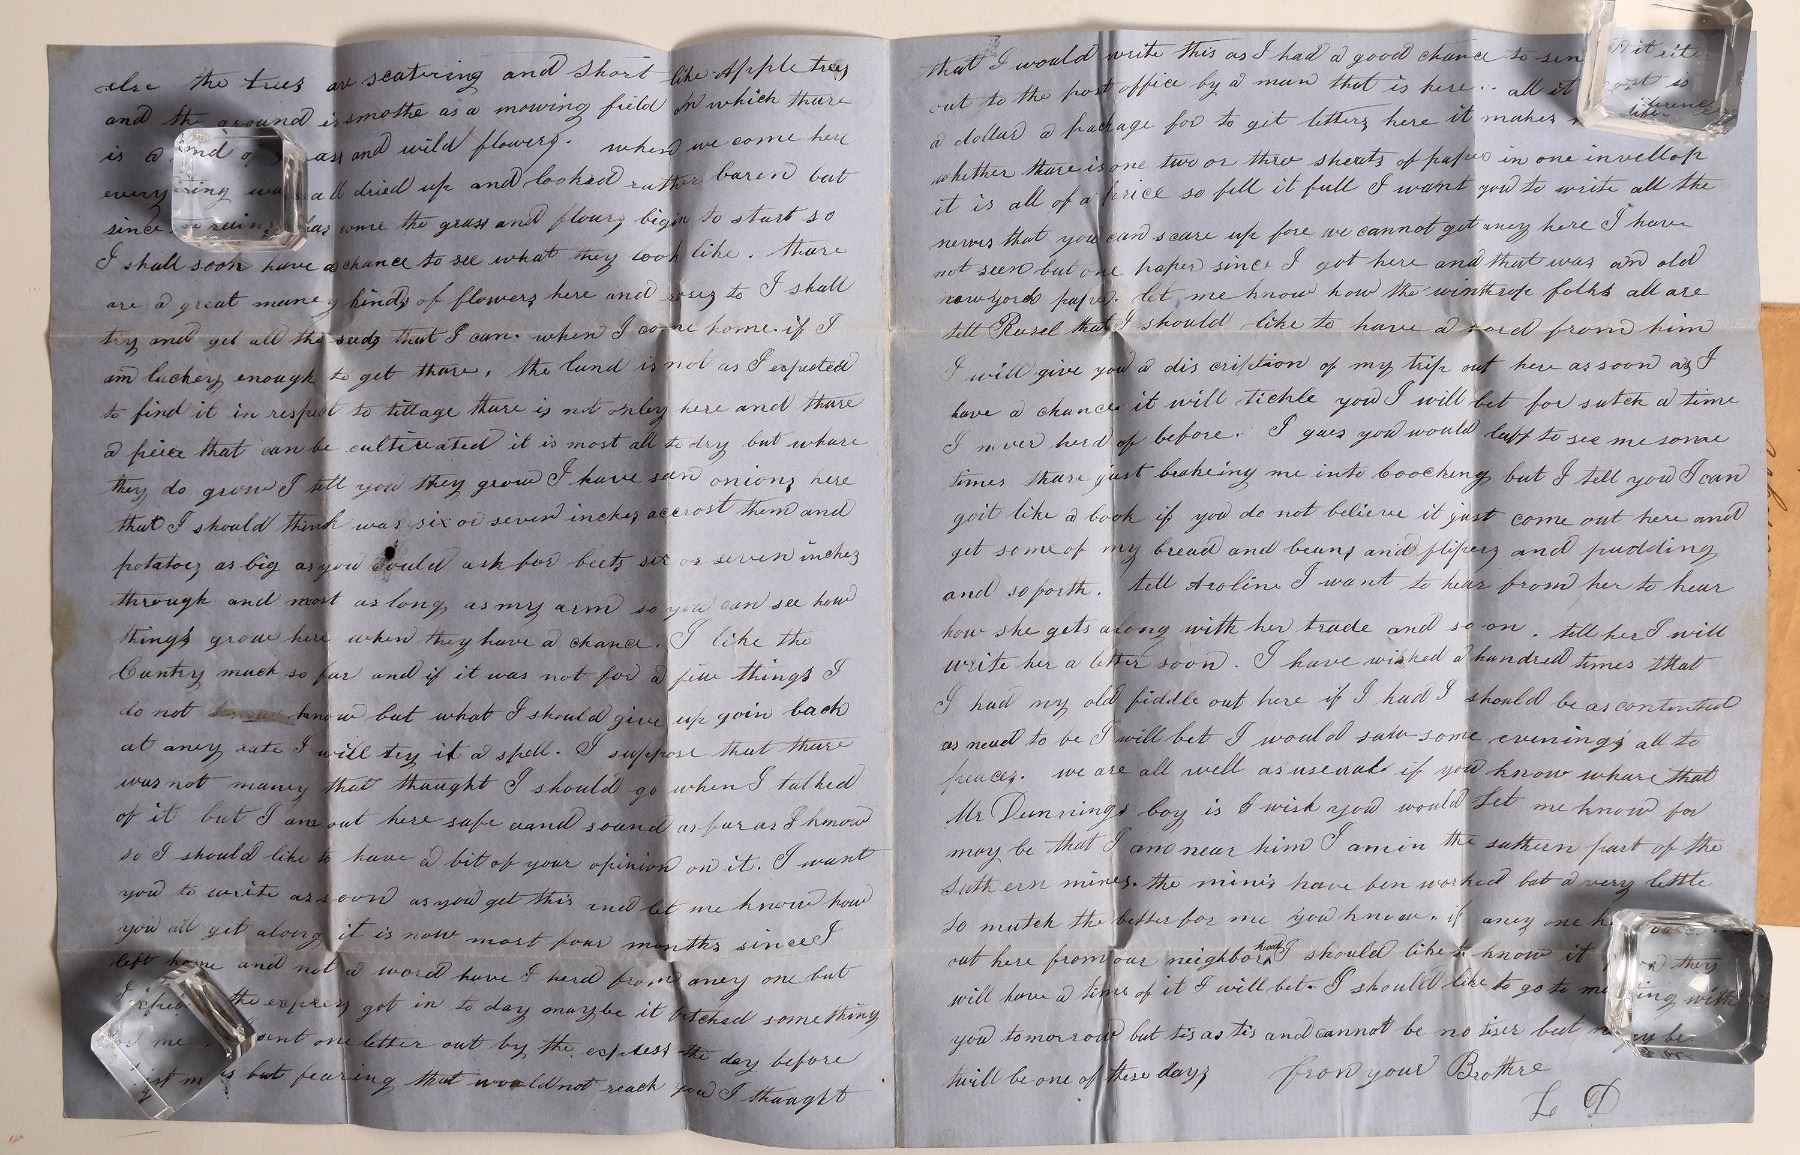 else the trees are scatering and short like Apple trees
and the ground is smothe as a mowing field in which thare
is a kind of grass and wild flowers. when we come here
every thing was all dried up and looked rather baren but
since the rains has come the grass and flours begin to start so
I shall soon have a chance to see what they look like. thare
are a great maney kinds of flowers here and roses to I shall
try and get all the seeds that I can. when I come home if I
am luckey enough to get thare, the land is not as I expected
to find it in respect to tillage thare is not onley here and thare
a peice that can be cultivated it is most all to dry but whare
they do grow I tell you they grow I have sean onions here
that I should think was six or seven inches accrost them and
potatoes as big as you could ask for beets six or seven inches
through and most as long as my arm so you can see how
things grow here when they have a chance. I like the
Cuntry much so far and if it was not for a few things I
do not know but what I should give up goin back
at aney rate I will try it a spell. I suppose that thare
was not maney that thaught I should go when I talked
of it but I am out here safe aand sound as far as I know
so I should like to have a bit of your opinion on it. I want
you to write as soon as you get this and let me know how
you all get along it is now most four months since I
left home and not a word have I herd from aney one but
I the express got in to day maybe it fetched something
for me I sent one letter out by the express the day before
but fearing that would not reach you I thaught
that I would write this as I had a good chance to send it
out to the post office by a man that is here .. all it cost is
a dollar a package for to get letters here it makes no diference
whether thare is one two or three sheats of paper in one invellop
it is all of a price so fill it full I want you to write all the
newes that you can scare up fore we cannot get aney here I have
not seen but one paper since I got here and that was an old
newyork paper. let me know how the winthrop folks all are
tell Rusel that I should like to have a word from him
I will give you a dis cription of my trip out here as soon as I
have a chance it will tickle you I will bet for sutch a time
I never herd of before. I gues you would laff to see me some
times thare just brakeing me into Coocking but I tell you I can
goit like a book if you do not believe it just come out here and
get some of my bread and beans and flipers and pudding
and so forth. tell Aroline I want to hear from her to hear
how she gets along with her trade and so on. tell her I will
write her a letter soon. I have wished a hundred times that
I had my old fiddle out here if I had I should be as contented
as nead to be I will bet I would saw some evening's all to
peaces. we are all well as useual if you know whare that
Mr Dunnings boy is I wish you would let me know for
may be that I am near him I am in the suthern part of the
suthern mines. the mines have ben worked but a very little
so mutch the better for me you know. if aney one
out here from our neighborhood I should like to know it they
will have a time of it I will bet. I should like to go to meeting with
you tomorrow but tis as tis and cannot be no tiser but may be
twill be one of these days from your Brothre
L D